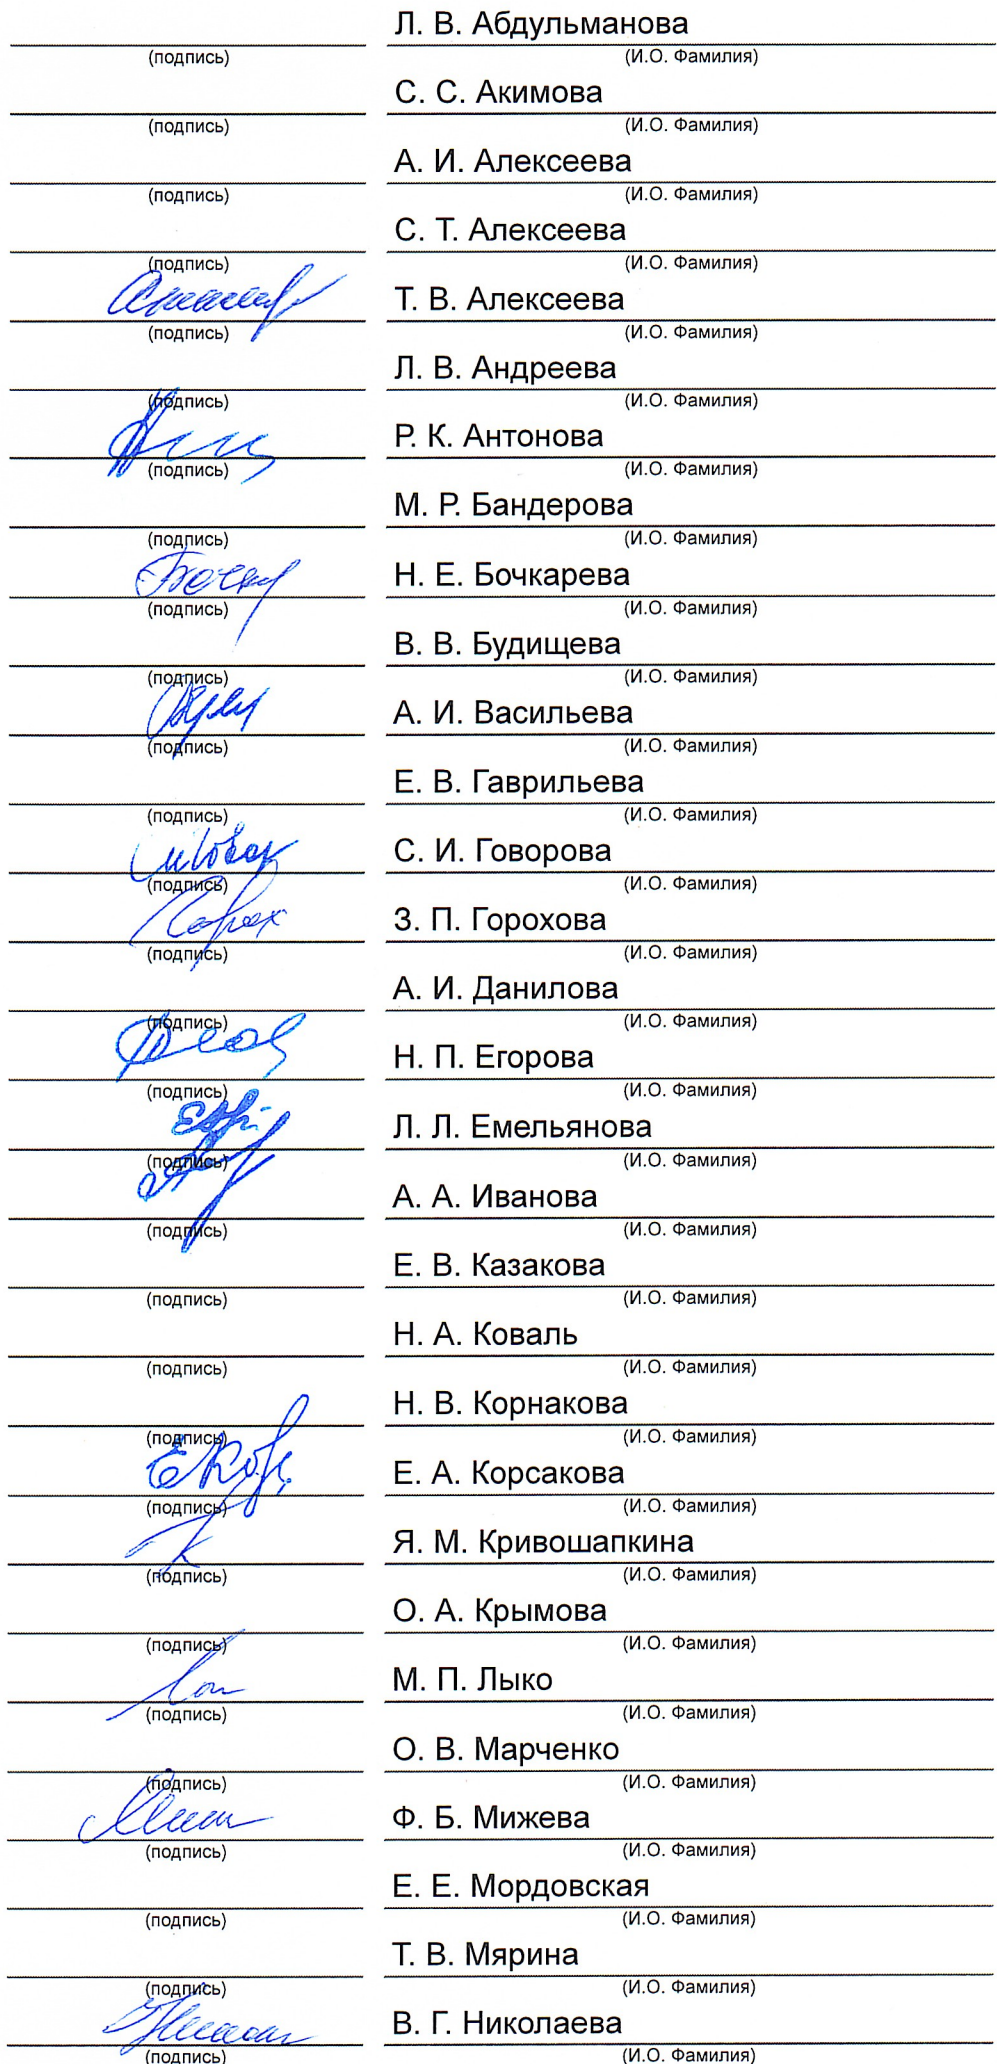 Л. В. Абдульманова
(подпись) (И.О. Фамилия)
С. С. Акимова
(подпись) (И.О. Фамилия)
А. И. Алексеева
(подпись) (И.О. Фамилия)
С. Т. Алексеева
(подпись) (И.О. Фамилия)
Т. В. Алексеева
(подпись) (И.О. Фамилия)
Л. В. Андреева
(подпись) (И.О. Фамилия)
Р. К. Антонова
(подпись) (И.О. Фамилия)
М. Р. Бандерова
(подпись) (И.О. Фамилия)
Н. Е. Бочкарева
(подпись) (И.О. Фамилия)
В. В. Будищева
(подпись) (И.О. Фамилия)
А. И. Васильева
(подпись) (И.О. Фамилия)
Е. В. Гаврильева
(подпись) (И.О. Фамилия)
С. И. Говорова
(подпись) (И.О. Фамилия)
З. П. Горохова
(подпись) (И.О. Фамилия)
А. И. Данилова
(подпись) (И.О. Фамилия)
Н. П. Егорова
(подпись) (И.О. Фамилия)
Л. Л. Емельянова
(подпись) (И.О. Фамилия)
А. А. Иванова
(подпись) (И.О. Фамилия)
Е. В. Казакова
(подпись) (И.О. Фамилия)
Н. А. Коваль
(подпись) (И.О. Фамилия)
Н. В. Корнакова
(подпись) (И.О. Фамилия)
Е. А. Корсакова
(подпись) (И.О. Фамилия)
Я. М. Кривошапкина
(подпись) (И.О. Фамилия)
О. А. Крымова
(подпись) (И.О. Фамилия)
М. П. Лыко
(подпись) (И.О. Фамилия)
О. В. Марченко
(подпись) (И.О. Фамилия)
Ф. Б. Мижева
(подпись) (И.О. Фамилия)
Е. Е. Мордовская
(подпись) (И.О. Фамилия)
Т. В. Мярина
(подпись) (И.О. Фамилия)
В. Г. Николаева
(подпись) (И.О. Фамилия)